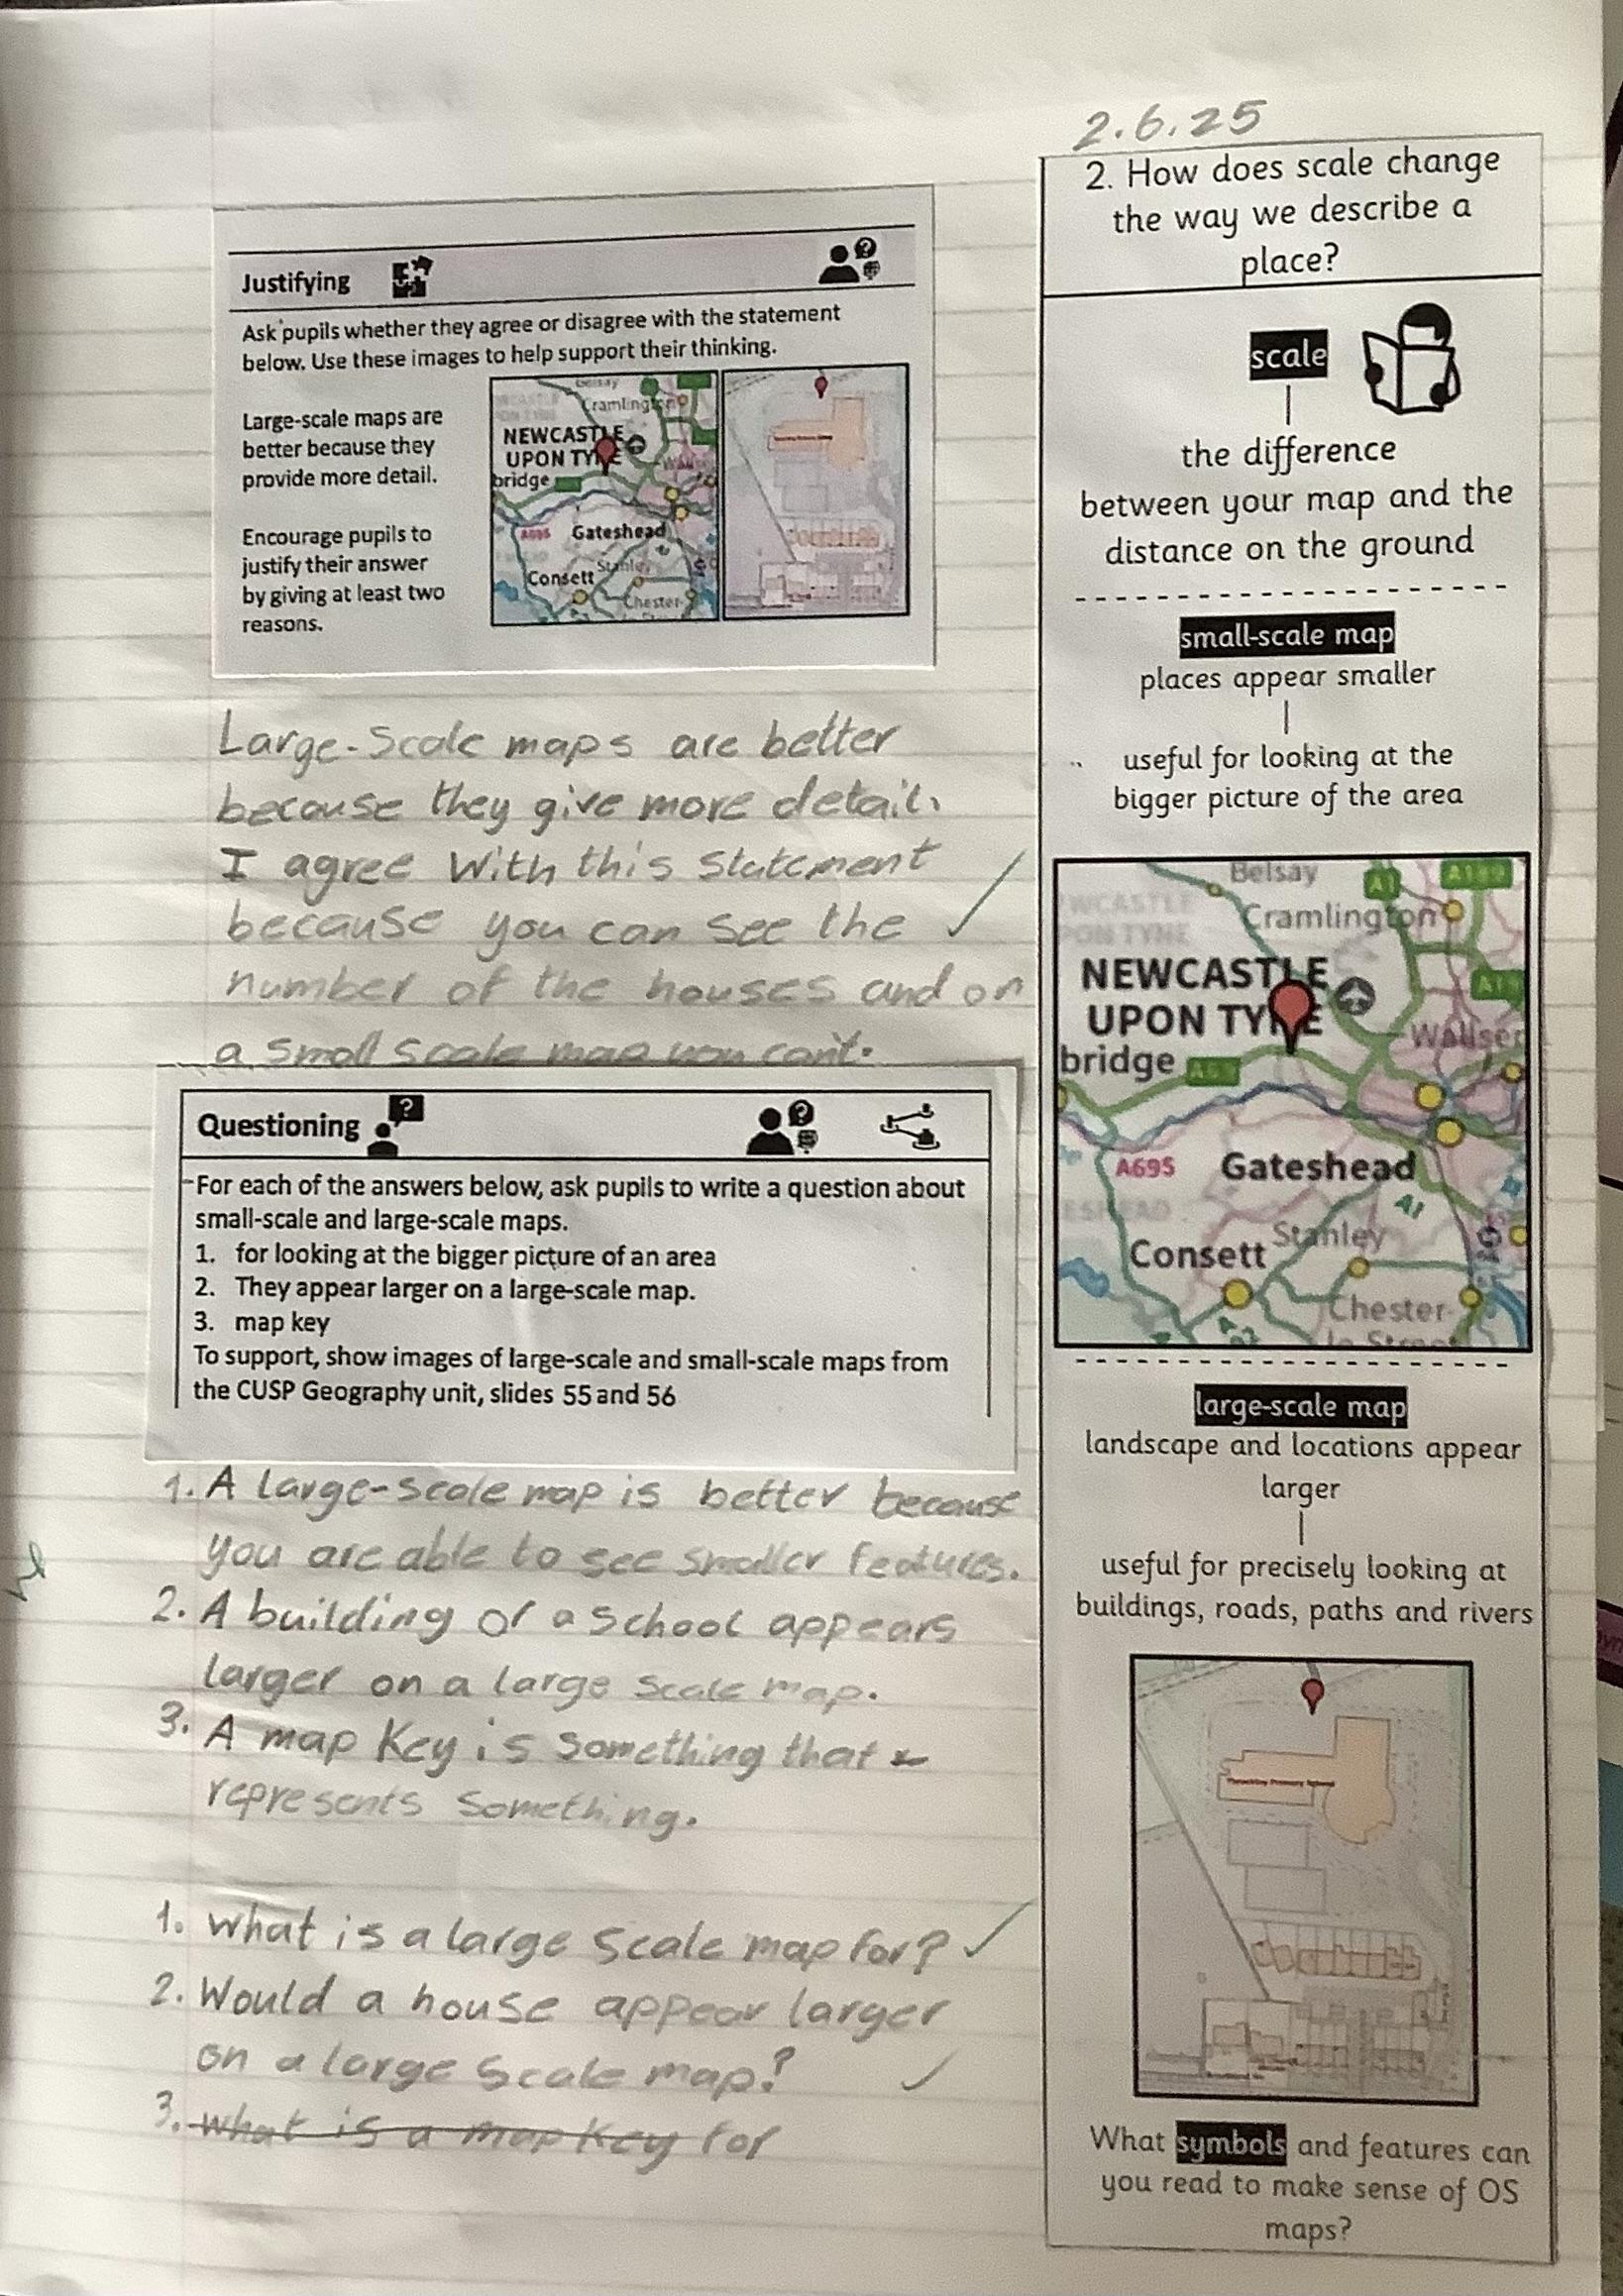 2.6.25
2. How does scale change
the way we describe a
place?
scale
the difference
between your map and the
distance on the ground
small-scale map
places appear smaller
useful for looking at the
bigger picture of the area
Belsay
A1
Cramlington
NEWCASTLE
UPON TYNE
bridge
A695
Gateshead
A1
Stanley
Consett
Chester-
large-scale map
landscape and locations appear
larger
useful for precisely looking at
buildings, roads, paths and rivers
What symbols and features can
you read to make sense of OS
maps?
Justifying
Ask pupils whether they agree or disagree with the statement
below. Use these images to help support their thinking.
Large-scale maps are
better because they
provide more detail.
Encourage pupils to
justify their answer
by giving at least two
reasons.
Belsay
Cramlington
NEWCASTLE
UPON TYNE
bridge
A695
Gateshead
Stanley
Consett
Chester-
Large-Scale maps are better
because they give more detail.
I agree With this Statement
because you can see the
number of the houses and on
a small scale map you can't.
Questioning
For each of the answers below, ask pupils to write a question about
small-scale and large-scale maps.
1. for looking at the bigger picture of an area
2. They appear larger on a large-scale map.
3. map key
To support, show images of large-scale and small-scale maps from
the CUSP Geography unit, slides 55 and 56
1. A large-scale map is better because
you are able to see smaller features.
2. A building or a school appears
larger on a large scale map.
3. A map key is something that
represents something.
1. What is a large scale map for?
2. Would a house appear larger
on a large scale map?
3. What is a map key for